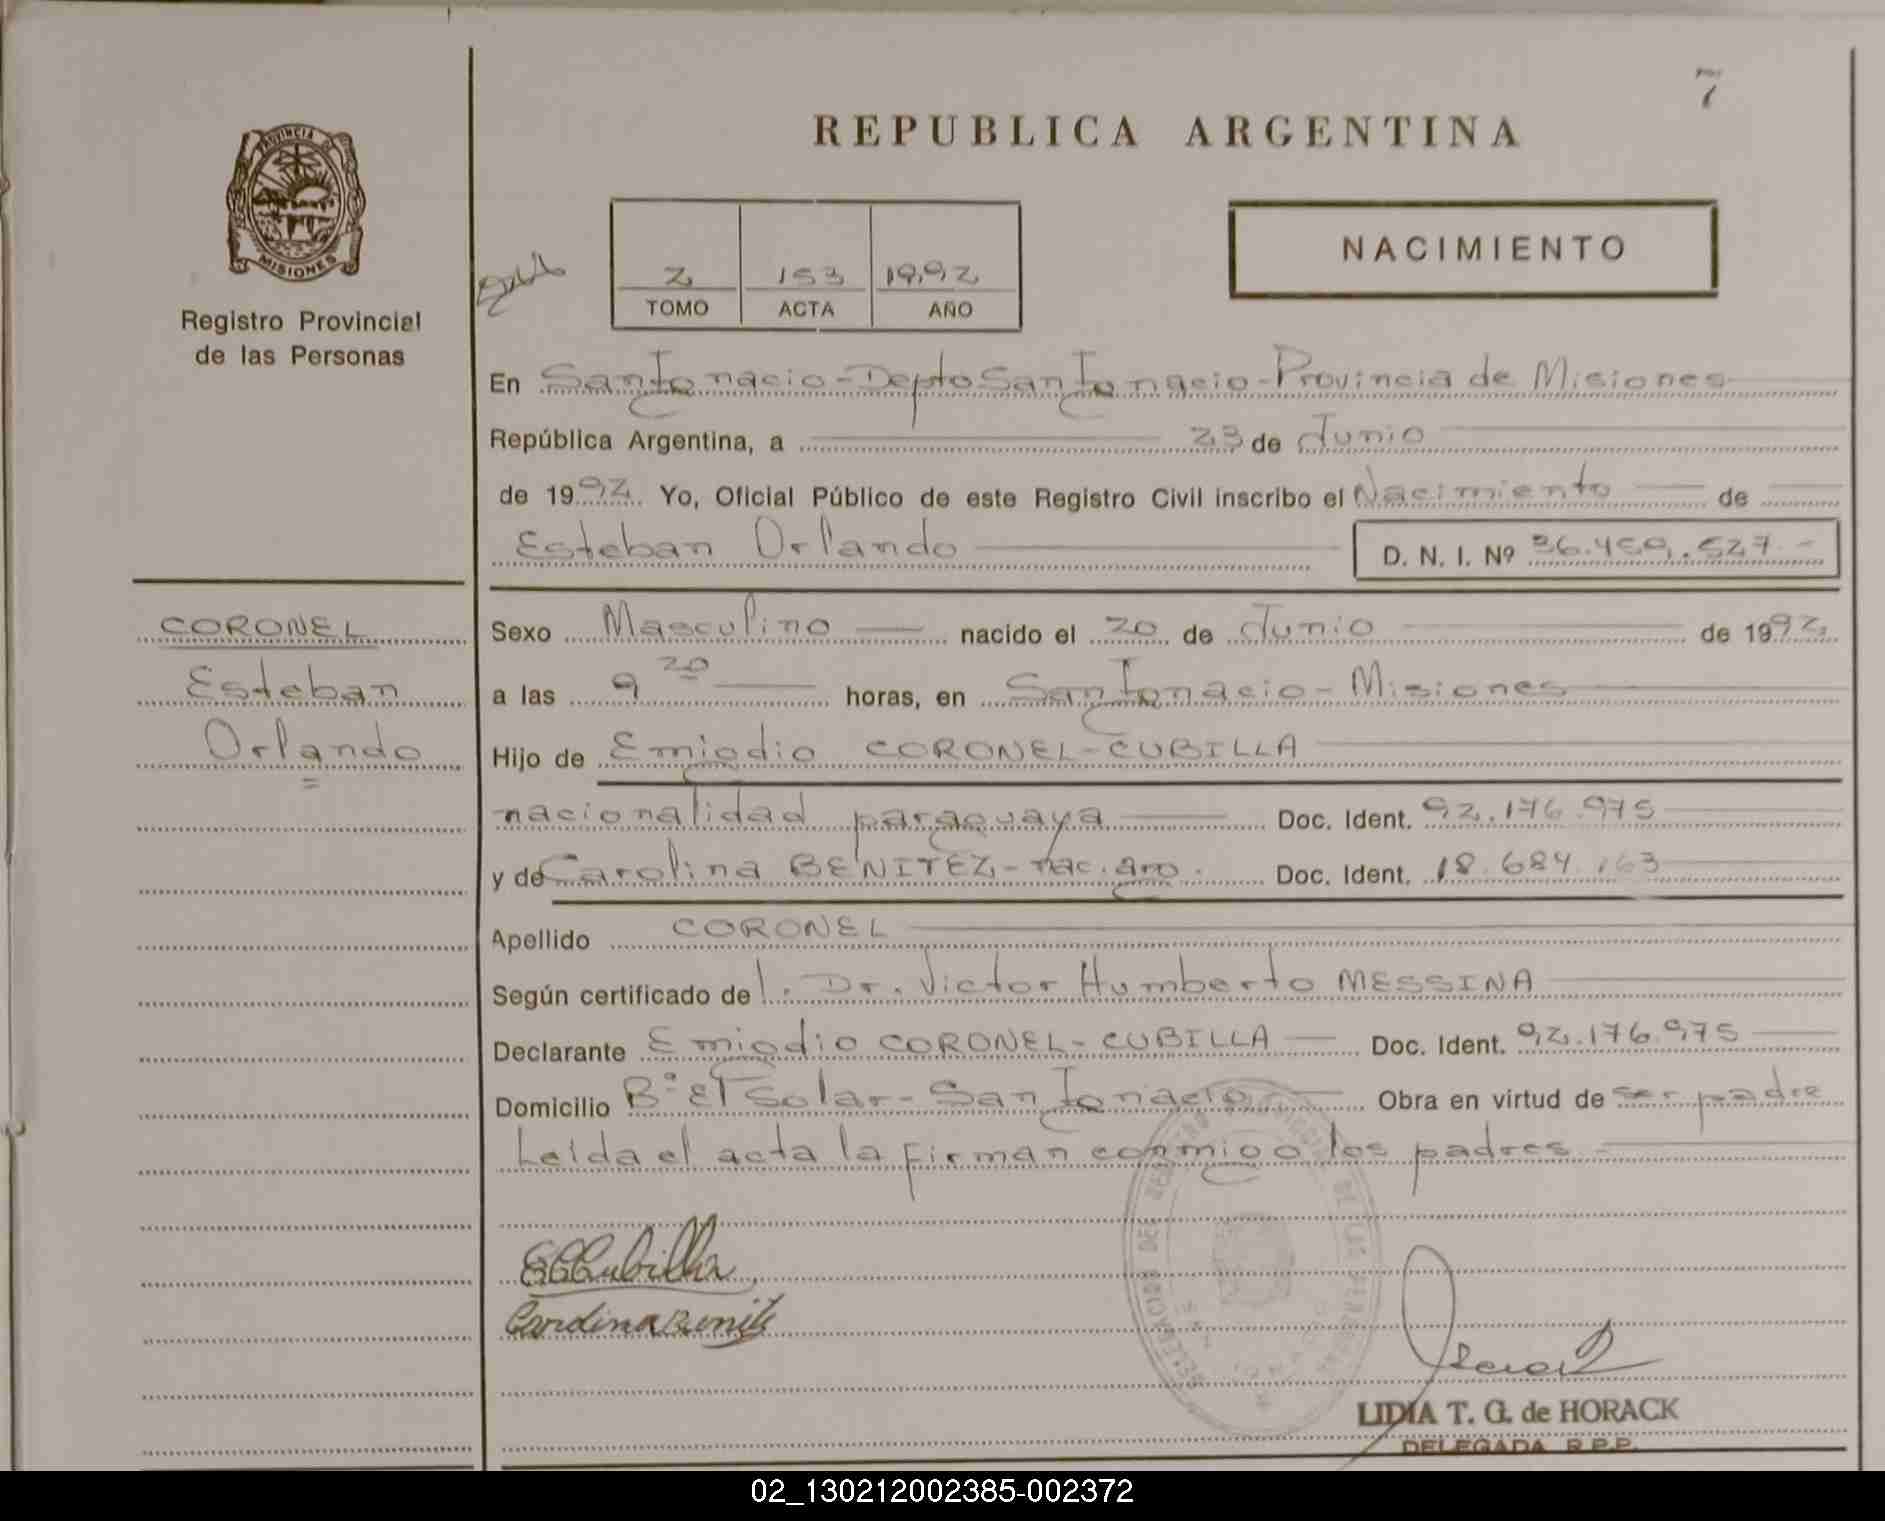 7
REPUBLICA ARGENTINA
PROVINCIA DE
MISIONES
Registro Provincial
de las Personas
2 153 1992
TOMO ACTA AÑO
NACIMIENTO
En San Ignacio - Depto San Ignacio - Provincia de Misiones
República Argentina, a 23 de Junio
de 1992 Yo, Oficial Público de este Registro Civil inscribo el Nacimiento de
Esteban Orlando D. N. I. Nº 36.459.527.-
CORONEL
Esteban
Orlando
Sexo Masculino nacido el 20 de Junio de 1992
a las 9 20 horas, en San Ignacio - Misiones
Hijo de Emigdio CORONEL-CUBILLA
nacionalidad paraguaya Doc. Ident. 92.176.975
y de Carolina BENITEZ - nac. arg. Doc. Ident. 18.684.163
Apellido CORONEL
Según certificado del. Dr. Victor Humberto MESSINA
Declarante Emigdio CORONEL-CUBILLA Doc. Ident. 92.176.975
Domicilio Bº El Solar - San Ignacio Obra en virtud de ser padre
Leída el acta la firman conmigo los padres
ECCubilla
Carolina Benite
LIDIA T. G. de HORACK
DELEGADA R.P.P.
02_130212002385-002372